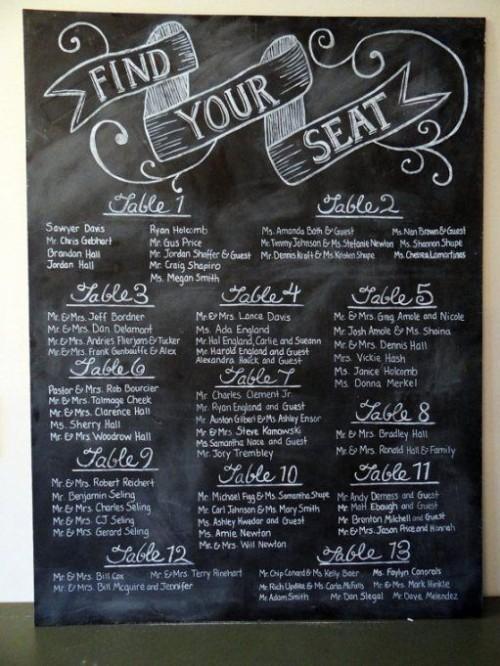 FIND
YOUR
SEAT
Table 1
Sawyer Davis
Mr. Chris Gebhart
Brandon Hall
Jordan Hall
Ryan Holcomb
Mr. Gus Price
Mr. Jordan Shaffer & Guest
Mr. Craig Shapiro
Ms. Megan Smith
Table 2
Ms. Amanda Both & Guest
Mr. Timmy Johnson & Ms. Stefanie Newton
Mr. Dennis Kraft & Ms. Kristen Shupe
Ms. Nan Brown & Guest
Ms. Shannon Shupe
Ms. Chelsea Lamartines
Table 3
Mr. & Mrs. Jeff Bordner
Mr. & Mrs. Dan Delamont
Mr. & Mrs. Andries Flierjans & Tucker
Mr. & Mrs. Frank & Alex
Table 4
Mr. & Mrs. Lance Davis
Ms. Ada England
Mr. Hal England, Carlie, and Sueann
Mr. Harold England and Guest
Alexandra Hauck and Guest
Table 5
Mr. & Mrs. Greg Amole and Nicole
Mr. Josh Amole & Ms. Shaina
Mr. & Mrs. Dennis Hall
Mrs. Vickie Hash
Ms. Janice Holcomb
Ms. Donna Merkel
Table 6
Pastor & Mrs. Rob Bourcier
Mr. & Mrs. Talmage Cheek
Mr. & Mrs. Clarence Hall
Ms. Sherry Hall
Mr. & Mrs. Woodrow Hall
Table 7
Mr. Charles Clement Jr.
Mr. Ryan England and Guest
Mr. Auston Gilbert & Ms. Ashley Ensor
Mr. & Mrs. Steve Kanowski
Ms. Samantha Nace and Guest
Mr. Jory Trembley
Table 8
Mr. & Mrs. Bradley Hall
Mr. & Mrs. Ronald Hall & Family
Table 9
Mr. & Mrs. Robert Reichert
Mr. Benjamin Seling
Mr. & Mrs. Charles Seling
Mr. & Mrs. CJ Seling
Mr. & Mrs. Gerard Seling
Table 10
Mr. Michael Figg & Ms. Samantha Shupe
Mr. Carl Johnson & Ms. Mary Smith
Ms. Ashley Kwedar and Guest
Ms. Amie Newton
Mr. & Mrs. Will Newton
Table 11
Mr. Andy Demess and Guest
Mr. Matt Ebaugh and Guest
Mr. Brenton Mitchell and Guest
Mr. & Mrs. Jason Price and Hannah
Table 12
Mr. & Mrs. Bill Cox
Mr. & Mrs. Terry Rinehart
Mr. & Mrs. Bill Mcguire and Jennifer
Table 13
Mr. Chip Conard & Ms. Kelly Baer
Ms. Faylyn
Mr. Rich Updike & Ms. Carla McFalls
Mr. & Mrs. Mark Hinkle
Mr. Adam Smith
Mr. Dan Slegal
Mr. Dave Melendez